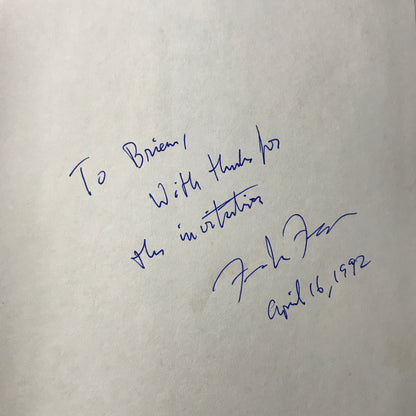 To Brian,
With thanks for
the invitation
April 16, 1992